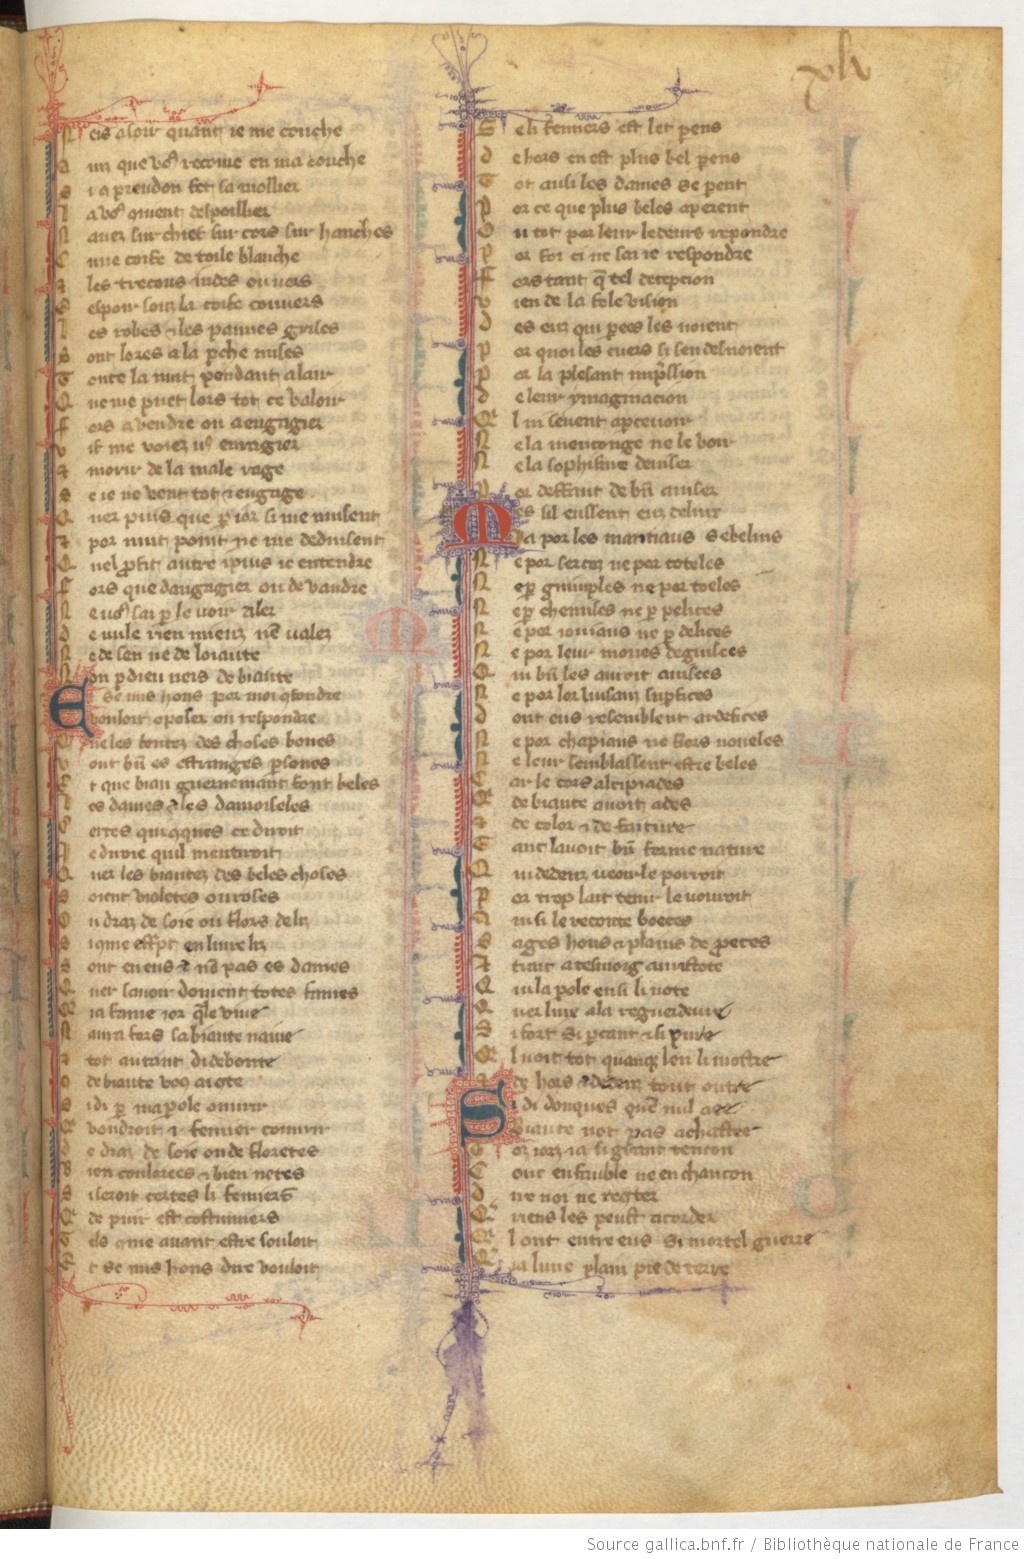 Neis a soir quant ie me couche
Ainz que vos recoiue en ma couche
Si a preudon fet sa moillier
La vos quient despoillier
Nauez sur chief sur cors sur hanches
Cune coife de toile blanche
les trecons indes ou vers
Espoir souz la coife couuers
Les robes & les pannes grises
Sont lores a la pche mises
Toute la nuit pendant a lair
Que me puet lors tot ce valoir
Fors a vendre ou a engagier
Vif me voiez vos enragier
morir de la male rage
Se ie ne vent tot & engage
Quer puis que p ior si me nuisent
por nuit point ne me deduisent
Quel profit autre i puis ie entendre
Fors que dangagier ou de vandre
Ne vos sai p le voir aler
De nule rien mieuz nen valez
Ne de sen ne de loiaute
Non p dieu neis de biaute
Et se nus hons por moi qfondre
vouloit oposer ou respondre
Que les bontez des choses bones
Vont bn es estranges psones
Et que biau guernemant font beles
Les dames & les damoiseles
Certes quiqques ce diroit
Ie diroie quil mentiroit
Quer les biautez des beles choses
Soient violetes ou roses
Ou draz de soie ou flors de liz
Si qme escpt en liure liz
Sont en eus & non pas es dames
Quer sauoir doiuent totes fames
Qia fame ior qle viue
Naura fors sa biaute naiue
tot autant di de bonte
de biaute vos ai ote
Si di p ma pole ouurir
Qui vondroit .i. femier couurir
De draz de soie ou de floretes
Bien coulorees & bien netes
Si seroit certes li femiers
Qui de puir est costumiers
Tels qme auant estre souloit
Et se nus hons dire vouloit
xlv
Se li femiers est let pens
dehors en est plus bel pens
Tot ausi les dames se perent
Por ce que plus beles aperent
Ou tot por leur ledeurs repondre
Por foi ci ne sai ie respondre
Fors tant q tel decepcion
Vien de la fole vision
Des euz qui parees les voient
Por quoi les cuers si sen desuoient
Por la plesant impssion
de leur ymaginacion
Quil ni seuent apceuoir
Ne la menconge ne le voir
Ne la sophisme deuiser
Por deffaut de bn auiser
Mes sil eussent euz de linx
Ia por les mantiaus sebelins
Ne por sercoz ne por coteles
Ne p guimples ne por toeles
Ne p chemises ne p pelices
Ne por ioiaus ne p delices
Ne por leur moues deguisees
Qui bn les auroit auisees
Ne por lor luisanz supfices
dont eus resemblent ardefices
Ne por chapiaus ne flors noueles
Ne leur semblassent estre beles
Car le cors alcipiades
Qui de biaute auoit ades
de color & de faiture
Tant lauoit bn forme nature
Qui dedenz veoir le porroit
Por trop lait tenir le vouroit
Ainsi le reconte boeces
Sages hons & plains de proeces
trait a tesmoig aristote
Qui la pole ensi li note
Quer linx a la regardeure
Si fort si pcant & si pure
Quil voit tot quanque len li mostre
de hors & dedenz tout outre
Si di donques quen nul aee
Biaute not pas a chastee
Toz iorz i a si grant tencon
Conc en fruble ne en chancon
dire noi ne recter
Q riens les peust acorder
Quil ont entre eus si mortel guerre
Qia lune plain pie de terre